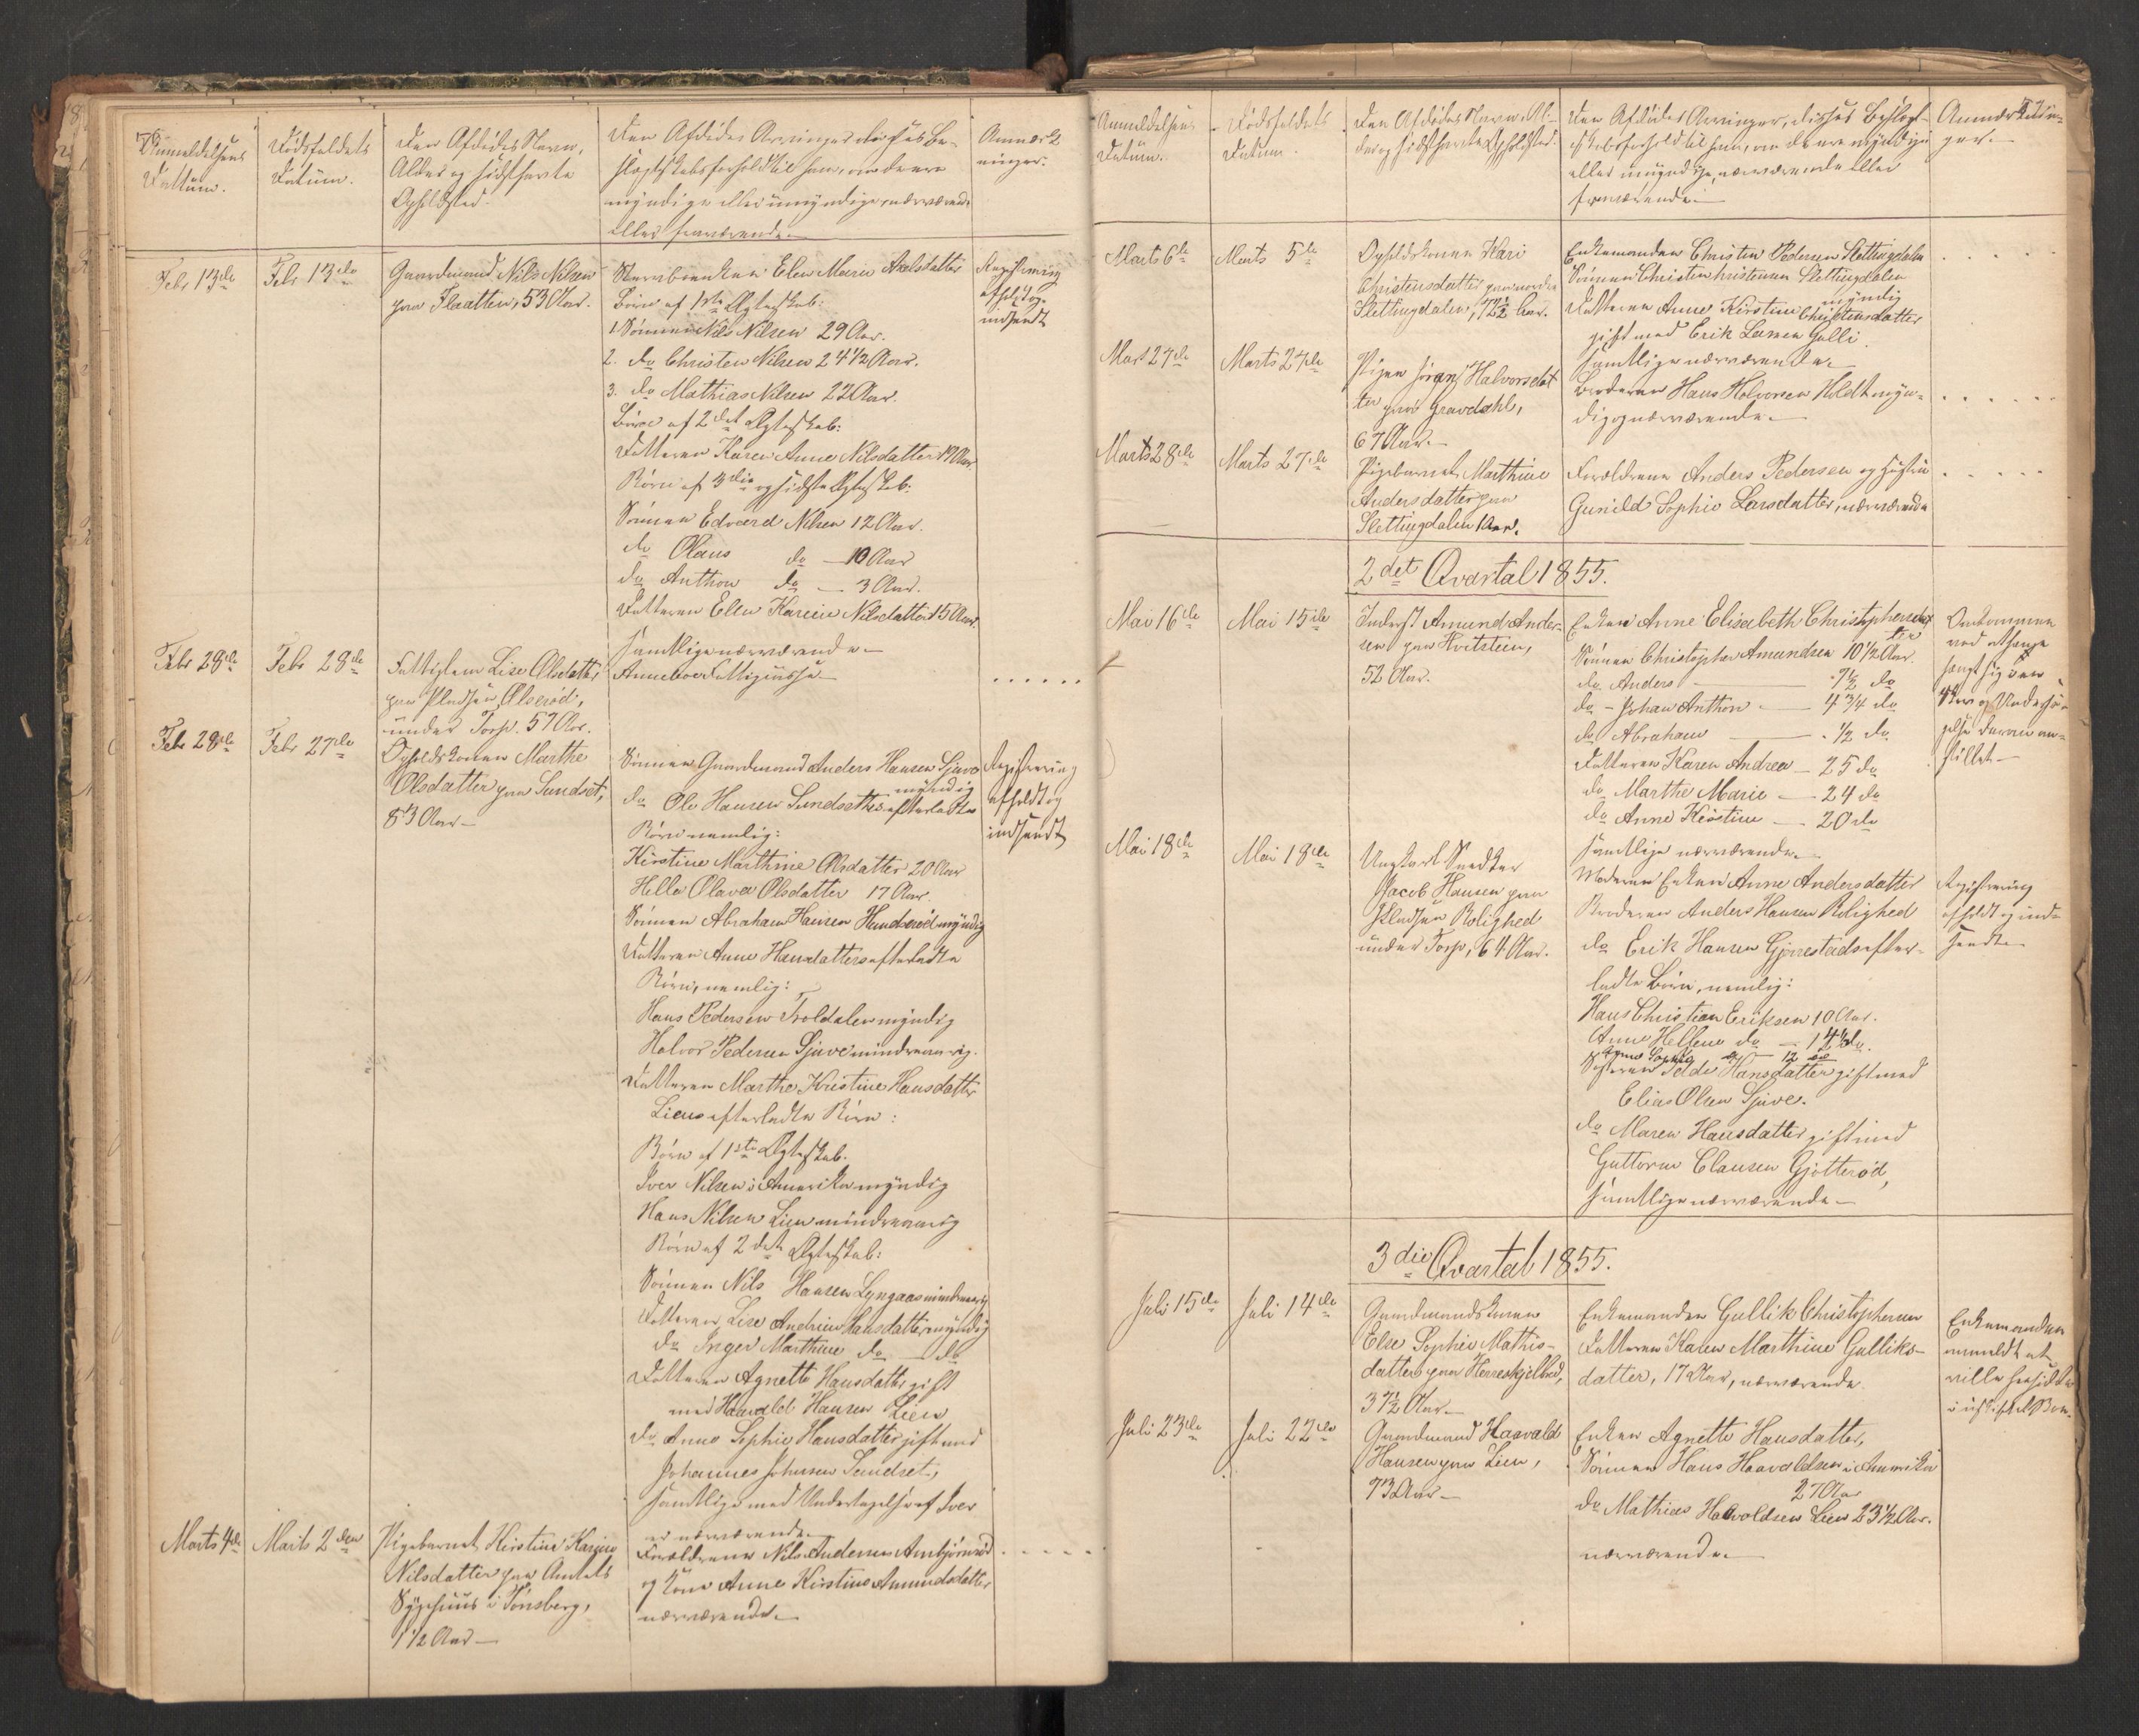 Anmeldelsens Datum.
Dødsfaldets Datum.
Den Afdødes Navn, Alder og sidsthavte Opholdssted.
Den Afdødes Arvinger, disses Be-
slægtskabsforhold til ham, om de ere
myndige eller umyndige, nærværende
eller fraværende.
Anmærk-
ninger.
Febr 13de
Febr 13de
Gaardmand Nils Nilsen
paa Flaatten, 53 Aar.
Stervboenken Elen Marie Axelsdatter
Børn af 1ste Ægteskab:
1. Sønnen Nils Nilsen 29 Aar.
2. do Christen Nilsen 24 1/2 Aar.
3. do Mathias Nilsen 22 Aar.
Børn af 2det Ægteskab:
Datteren Karen Anne Nilsdatter 17 Aar
Børn af 3die og sidste Ægteskab:
Sønnen Edvard Nilsen 12 Aar.
do Olaus do — 10 Aar
do Anthon do — 3 Aar.
Datteren Ellen Karine Nilsdatter 15 Aar.
samtlige nærværende.
Registrering
afholdt og
indsendt
Febr 28de
Febr 28de
Fattiglem Lise Olsdatter
paa Pladsen Olserød,
under Torp. 57 Aar.
Anneboer Fattigcasse
. . . . . .
Febr 28de
Febr 27de
Opholdskonen Marthe
Olsdatter paa Sundset,
83 Aar
Sønnen Gaardmand Anders Hansen Sjuve
myndig
do Ole Hansen Sundsets efterladte
Børn nemlig:
Kirstine Marthine Olsdatter 20 Aar
Helle Olava Olsdatter 17 Aar.
Sønnen Abraham Hansen Hunderød myndig
Datteren Anne Hansdatters efterladte
Børn, nemlig:
Hans Pedersen Troldalen myndig
Halvor Pedersen Sjuve mindreaarig.
Datteren Marthe Kristine Hansdatter
Liens efterladte Børn:
Børn af 1ste Ægteskab.
Iver Nilsen i Amerika myndig
Hans Nilsen Lien mindreaarig
Børn af 2det Ægteskab:
Sønnen Nils Hansen Lyngaas mindreaarig
Datteren Lise Andrine Hansdatter myndig
do Inger Marthine do — do
Datteren Agnette Hansdatter gift
med Haavald Hansen Lien
do Anne Sophie Hansdatter gift med
Johannes Johnsen Sundset,
samtlige med Undtagelse af Iver
er nærværende.
Registrering
afholdt og
indsendt
Marts 4de
Marts 2den
Pigebarnet Kirstine Karine
Nilsdatter paa Amtets
Sygehuus i Tønsberg,
1 1/2 Aar
Forældrene Nils Andersen Ambjørnrød
og Kone Anne Kirstine Amundsdatter
nærværende.
. . . . .
Anmeldelsens
Datum.
Dødsfaldets
Datum.
Den Afdødes Navn, Al-
der og sidsthavte Opholdsted.
Den Afdødes Arvinger, disses Beslægt-
skabsforhold til ham, om de ere myndige
eller umyndige, nærværende eller
fraværende.
Anmærknin-
ger.
Marts 6te
Marts 5te
Opholdskonen Kari
Christensdatter paa nordre
Slettingdalen, 72 1/2 Aar.
Enkemanden Christen Pedersen Slettingdalen
Sønnen Christen Christensen Slettingdalen
myndig
Datteren Anne Kirstine Christensdatter
gift med Erik Larsen Gulli.
samtlige nærværende.
. . . . .
Mart 27de
Marts 24de
Pigen Jøran Halvorsdat
ter paa Gravdahl,
67 Aar.
Broderen Hans Halvorsen Holdt myn-
dig og nærværende.
. . . . . .
Marts 28de
Marts 27de
Pigebarnet Marthine
Andersdatter paa
Slettingdalen 1 Aar.
Forældrene Anders Pedersen og Hustru
Gunild Sophie Larsdatter, nærværende
. . . . .
2det Qvartal 1855.
Mai 16de
Mai 15de
Inderst Amund Ander-
sen paa Hvitsteen,
52 Aar.
Enken Anne Elisebeth Christophersdat
ter
Sønnen Christopher Amundsen 10 1/2 Aar.
do Anders — 7 1/2 do
do - Johan Anthon — 4 3/4 do
do Abraham — 1/2 do
Datteren Karen Andrea — 25 do
do Marthe Marie — 24 do
do Anne Kirstine — 20 do
samtlige nærværende.
Omkommen
ved at have
hængt sig
og Undersø-
gelse derom an-
stillet
Mai 18de
Mai 18de
Ungkarl Snedker
Jacob Hansen paa
Pladsen Rolighed
under Torp, 64 Aar.
Moderen Enken Anne Andersdatter
Broderen Anders Hansen Rolighed
do Erik Hansen Gjærestads efter-
ladte Børn, nemlig:
Hans Christian Eriksen 10 Aar.
Anne Hellene do — 14 do.
Anne Sophie do — 12 do
Søsteren Helde Hansdatter gift med
Elias Olsen Sjuve.
do Maren Hansdatter gift med
Guttorm Clausen Gjøtterød,
samtlige nærværende
Registrering
afholdt og ind-
sendt
3die Qvartal 1855.
Juli 15de
Juli 14de
Gaardmandskonen
Else Sophie Mathis-
datter paa Herreskjelbed,
37 1/2 Aar.
Enkemanden Gullik Christophersen
Datteren Karen Marthine Gulliks-
datter, 17 Aar, nærværende.
Enkemanden
anmeldt at
ville hensidde
i uskiftet Boe.
Juli 23de
Juli 22de
Gaardmand Haavald
Hansen paa Lien,
73 Aar
Enken Agnette Hansdatter,
Sønnen Hans Haavaldsen i Amerika
27 Aar
do Mathias Haavoldsen Lien 23 1/2 Aar.
nærværende.